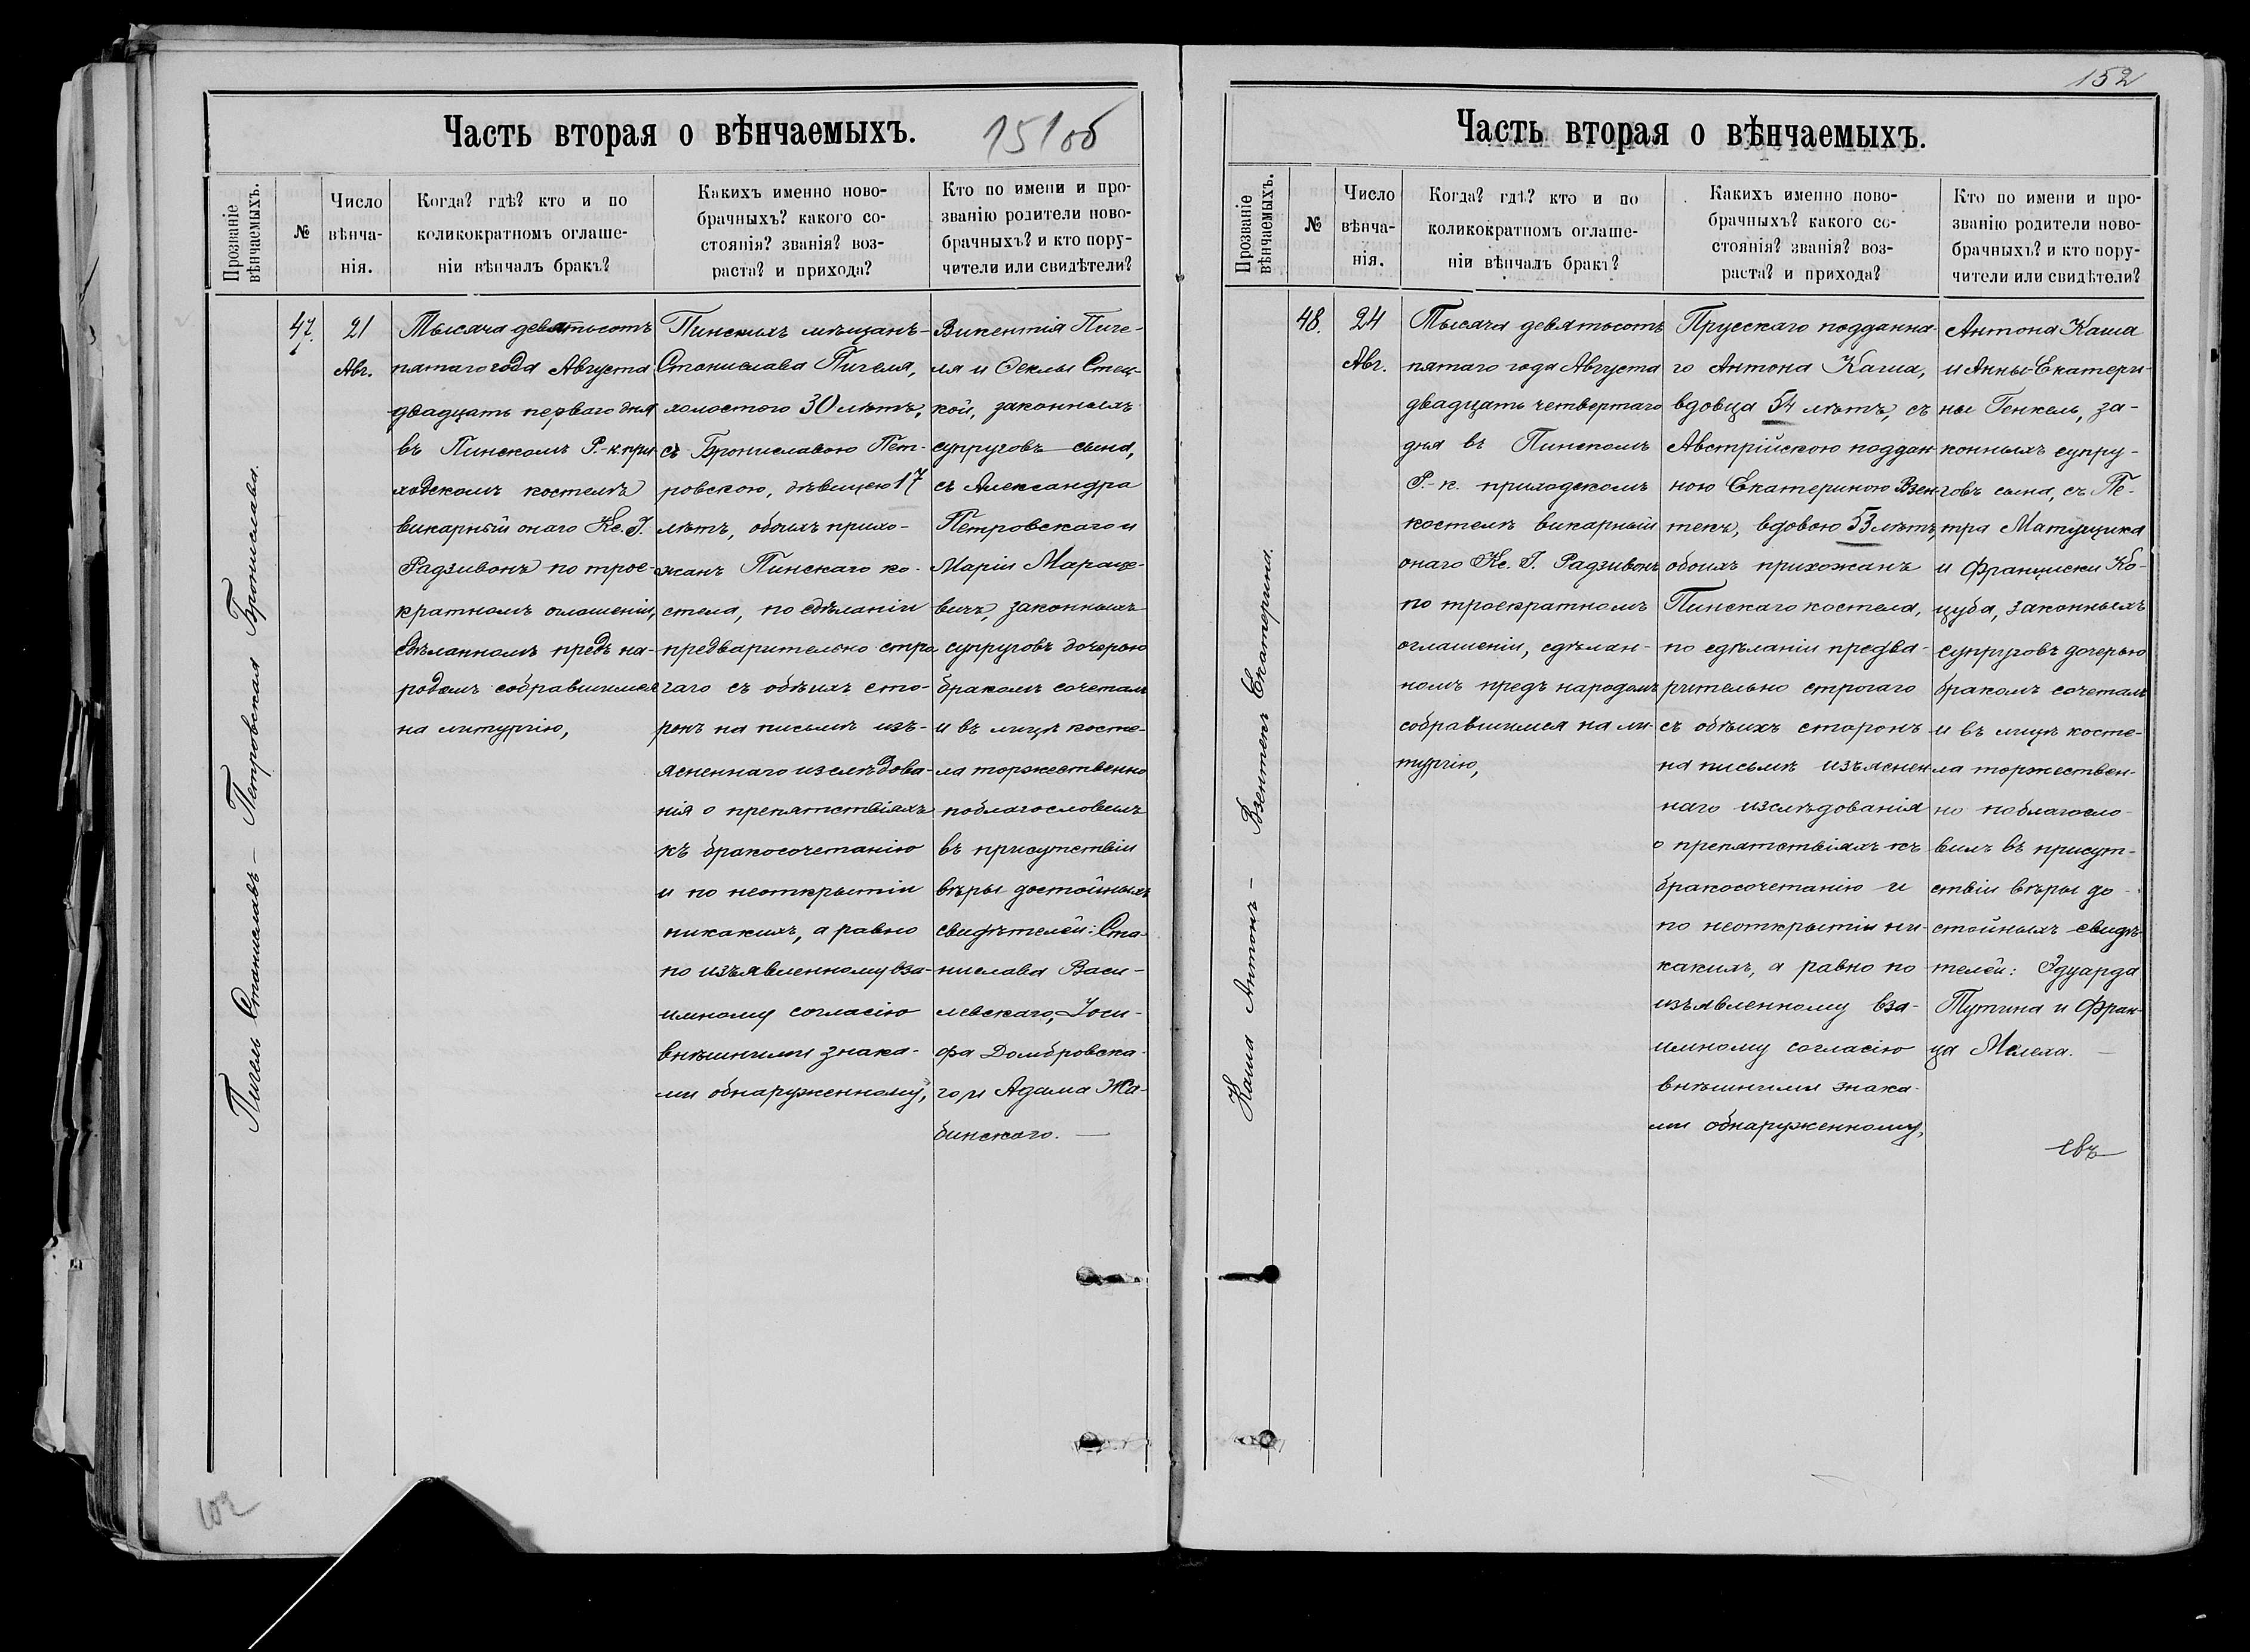 Часть вторая о вѣнчаемыхъ.
151об
Прозваніе
вѣнчаемыхъ.
№
Число
вѣнча-
нія.
Когда? гдѣ? кто и по
коликократномъ оглаше-
ніи вѣнчалъ бракъ?
Какихъ именно ново-
брачныхъ? какого со-
стоянія? званія? воз-
раста? и прихода?
Кто по имени и про-
званію родители ново-
брачныхъ? и кто пору-
чители или свидѣтели?
Пигель Станиславъ – Петровская Бронислава.
47.
21
Авг.
Тысяча девятьсотъ
пятаго года Августа
двадцать перваго дня
въ Пинскомъ Р.-к. при-
ходскомъ костелѣ
викарный онаго Кс. І.
Радзивонъ по трое-
кратномъ оглашеніи,
сдѣланномъ предъ на-
родомъ собравшимся
на литургію,
Пинскихъ мѣщанъ-
Станислава Пигеля,
холостого 30 лѣтъ,
съ Брониславою Пет-
ровскою, дѣвицею 17
лѣтъ, обоихъ прихо-
жанъ Пинскаго ко-
стела, по сдѣланіи
предварительно стро
гаго съ обѣихъ сто-
ронъ на письмѣ изъ-
ясненнаго изслѣдова-
нія о препятствіяхъ
къ бракосочетанію
и по неоткрытіи
никакихъ, а равно
по изъявленному вза-
имному согласію
внѣшними знака-
ми обнаруженному,
Викентія Пиге-
ля и Феклы Стец-
кой, законныхъ
супруговъ сына,
съ Александра
Петровскаго и
Маріи Мараце-
вичъ, законныхъ
супруговъ дочерью
бракомъ сочеталъ
и въ лицѣ косте-
ла торжественно
поблагословилъ
въ присутствіи
вѣры достойныхъ
свидѣтелей: Ста-
нислава Васи-
левскаго, Іоси-
фа Домбровска-
го и Адама Жа-
бинскаго. —
102
152
Часть вторая о вѣнчаемыхъ.
Прозваніе
вѣнчаемыхъ.
№
Число
вѣнча-
нія.
Когда? гдѣ? кто и по
коликократномъ оглаше-
ніи вѣнчалъ бракъ?
Какихъ именно ново-
брачныхъ? какого со-
стоянія? званія? воз-
раста? и прихода?
Кто по имени и про-
званію родители ново-
брачныхъ? и кто пору-
чители или свидѣтели?
Каша Антонъ – Взентекъ Екатерина.
48.
24
Авг.
Тысяча девятьсотъ
пятаго года Августа
двадцать четвертаго
дня въ Пинскомъ
Р.-к. приходскомъ
костелѣ викарный
онаго Кс. І. Радзивонъ
по троекратномъ
оглашеніи, сдѣлан-
номъ предъ народомъ
собравшимся на ли-
тургію,
Прусскаго подданна-
го Антона Каша,
вдовца 54 лѣтъ, съ
Австрійскою поддан-
ною Екатериною Взен-
текъ, вдовою 53 лѣтъ,
обоихъ прихожанъ
Пинскаго костела,
по сдѣланіи предва-
рительно строгаго
съ обѣихъ сторонъ
на письмѣ изъяснен
наго изслѣдованія
о препятствіяхъ къ
бракосочетанію и
по неоткрытіи ни-
какихъ, а равно по
изъявленному вза-
имному согласію
внѣшними знака-
ми обнаруженному,
Антона Каша
и Анны-Екатери-
ны Генкель, за-
конныхъ супру-
говъ сына, съ Пе-
тра Матущика
и Франциски Ко-
цуба, законныхъ
супруговъ дочерью
бракомъ сочеталъ
и въ лицѣ косте-
ла торжествен-
но поблагосло-
вилъ въ присут-
ствіи вѣры до-
стойныхъ свидѣ-
телей: Эдуарда
Тутина и Фран-
ца Мелеха. —